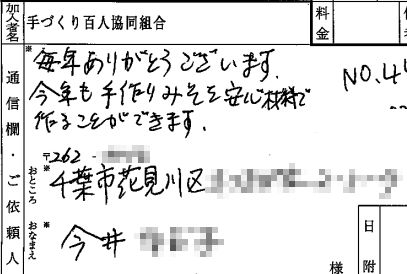 加入者名
手づくり百人協同組合
料金
※
毎年ありがとうございます.
今年も手作りみそを安心材料で
作ることができます.
NO.4
通信欄・ご依頼人
〒262-
おところ
※
千葉市花見川区
おなまえ
※
今井
様
日附